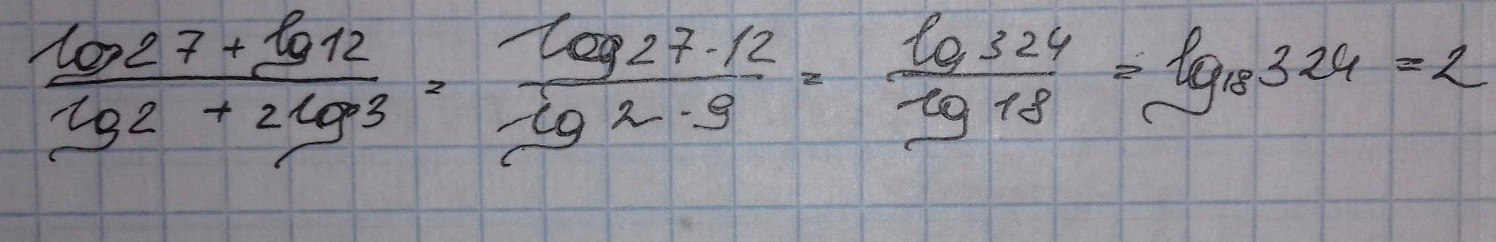 lg27 + lg12 / lg2 + 2lg3 = lg27·12 / lg2·9 = lg324 / lg18 = lg₁₈324 = 2